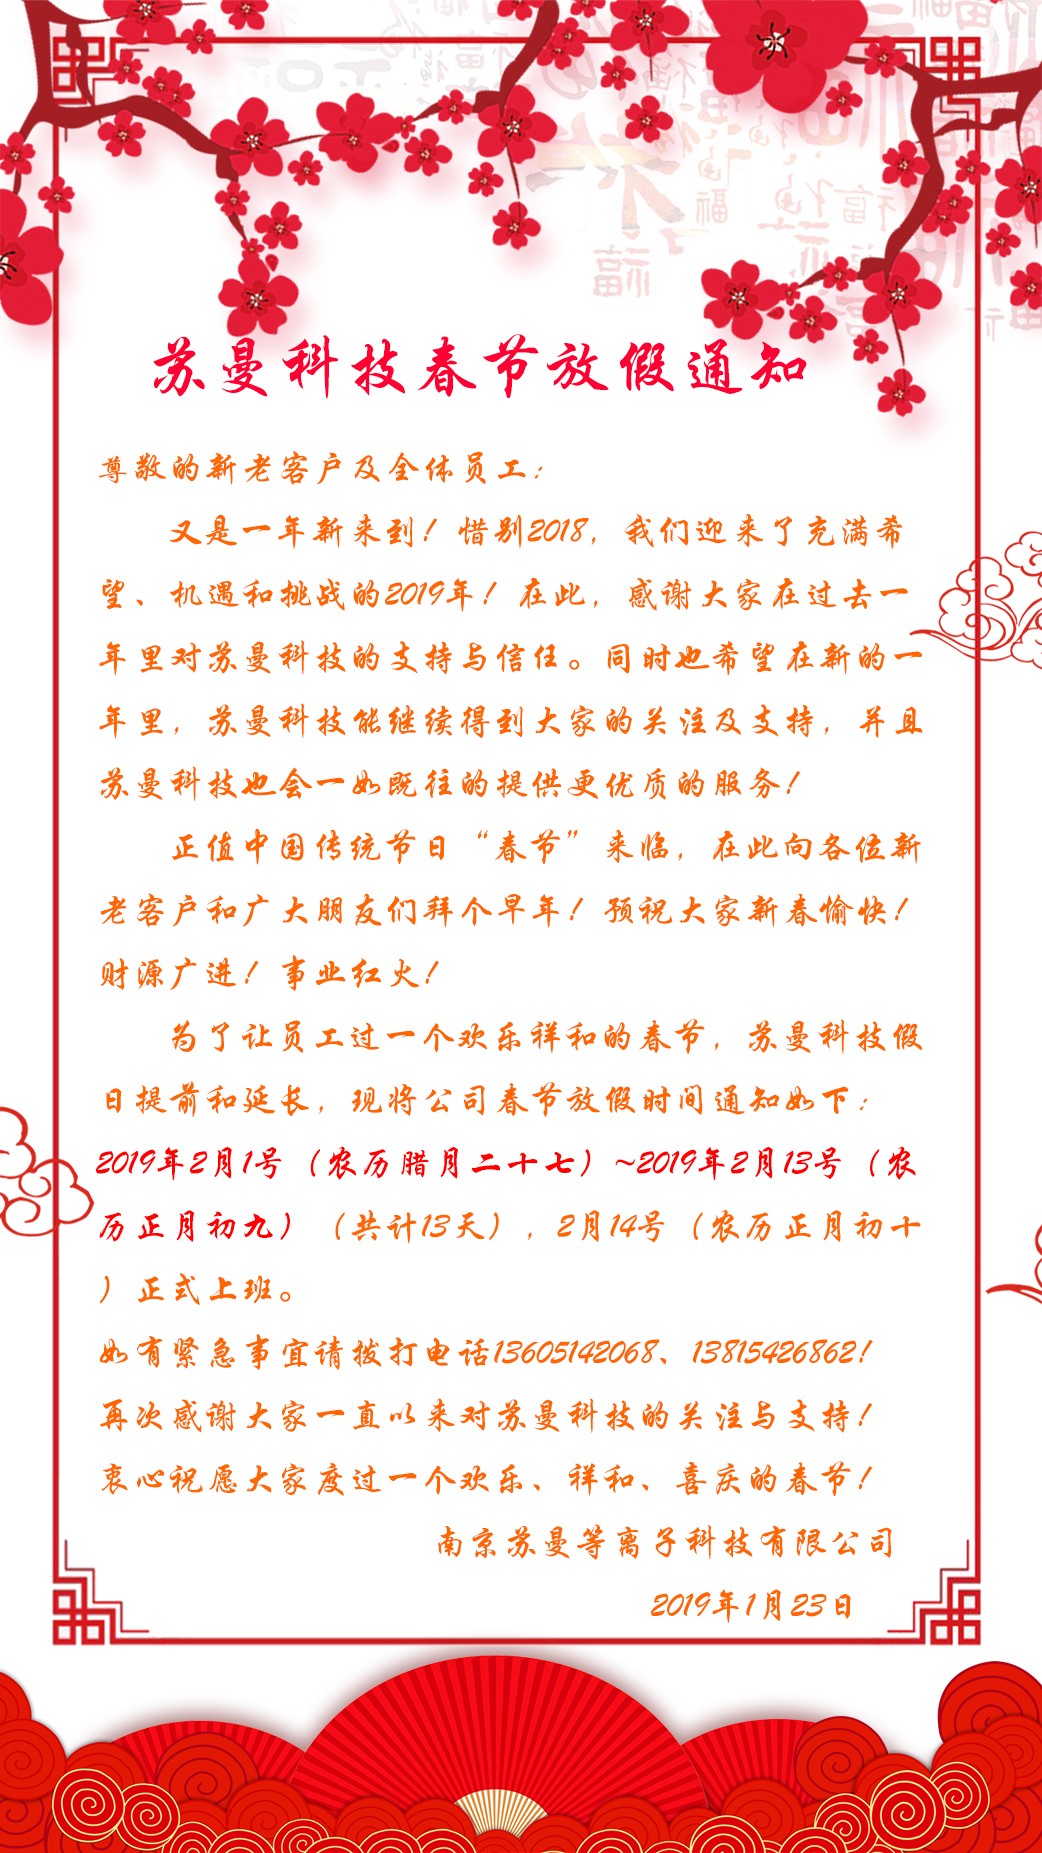 苏曼科技春节放假通知
尊敬的新老客户及全体员工：
又是一年新来到！惜别2018，我们迎来了充满希
望、机遇和挑战的2019年！在此，感谢大家在过去一
年里对苏曼科技的支持与信任。同时也希望在新的一
年里，苏曼科技能继续得到大家的关注及支持，并且
苏曼科技也会一如既往的提供更优质的服务！
正值中国传统节日“春节”来临，在此向各位新
老客户和广大朋友们拜个早年！预祝大家新春愉快！
财源广进！事业红火！
为了让员工过一个欢乐祥和的春节，苏曼科技假
日提前和延长，现将公司春节放假时间通知如下：
2019年2月1号（农历腊月二十七）~2019年2月13号（农
历正月初九）（共计13天），2月14号（农历正月初十
）正式上班。
如有紧急事宜请拨打电话13605142068、13815426862！
再次感谢大家一直以来对苏曼科技的关注与支持！
衷心祝愿大家度过一个欢乐、祥和、喜庆的春节！
南京苏曼等离子科技有限公司
2019年1月23日